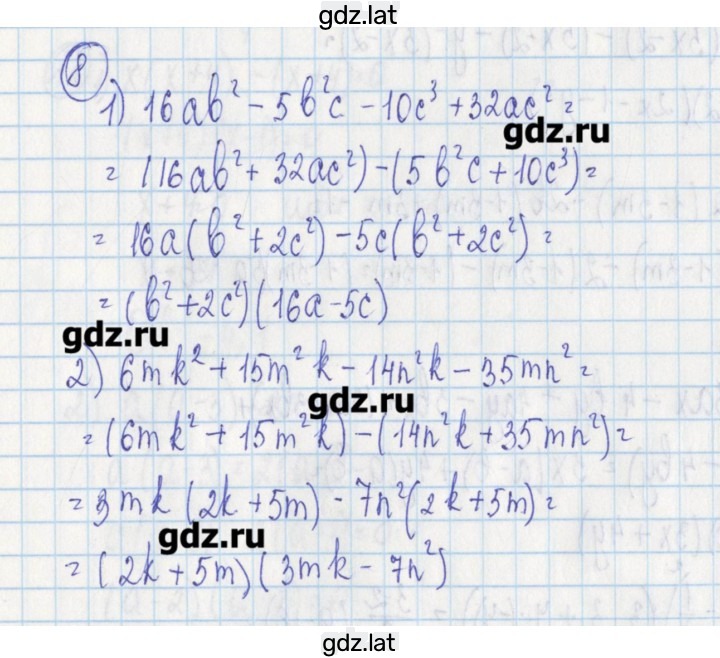 gdz.lat
8
1) 16ab² - 5b²c - 10c³ + 32ac² =
gdz.ru
= (16ab² + 32ac²) - (5b²c + 10c³) =
= 16a(b² + 2c²) - 5c(b² + 2c²) =
= (b² + 2c²)(16a - 5c)
gdz.ru
2) 6mk² + 15m²k - 14n²k - 35mn² =
gdz.ru
= (6mk² + 15m²k) - (14n²k + 35mn²) =
= 3mk(2k + 5m) - 7n²(2k + 5m) =
gdz.ru
= (2k + 5m)(3mk - 7n²)
gdz.lat